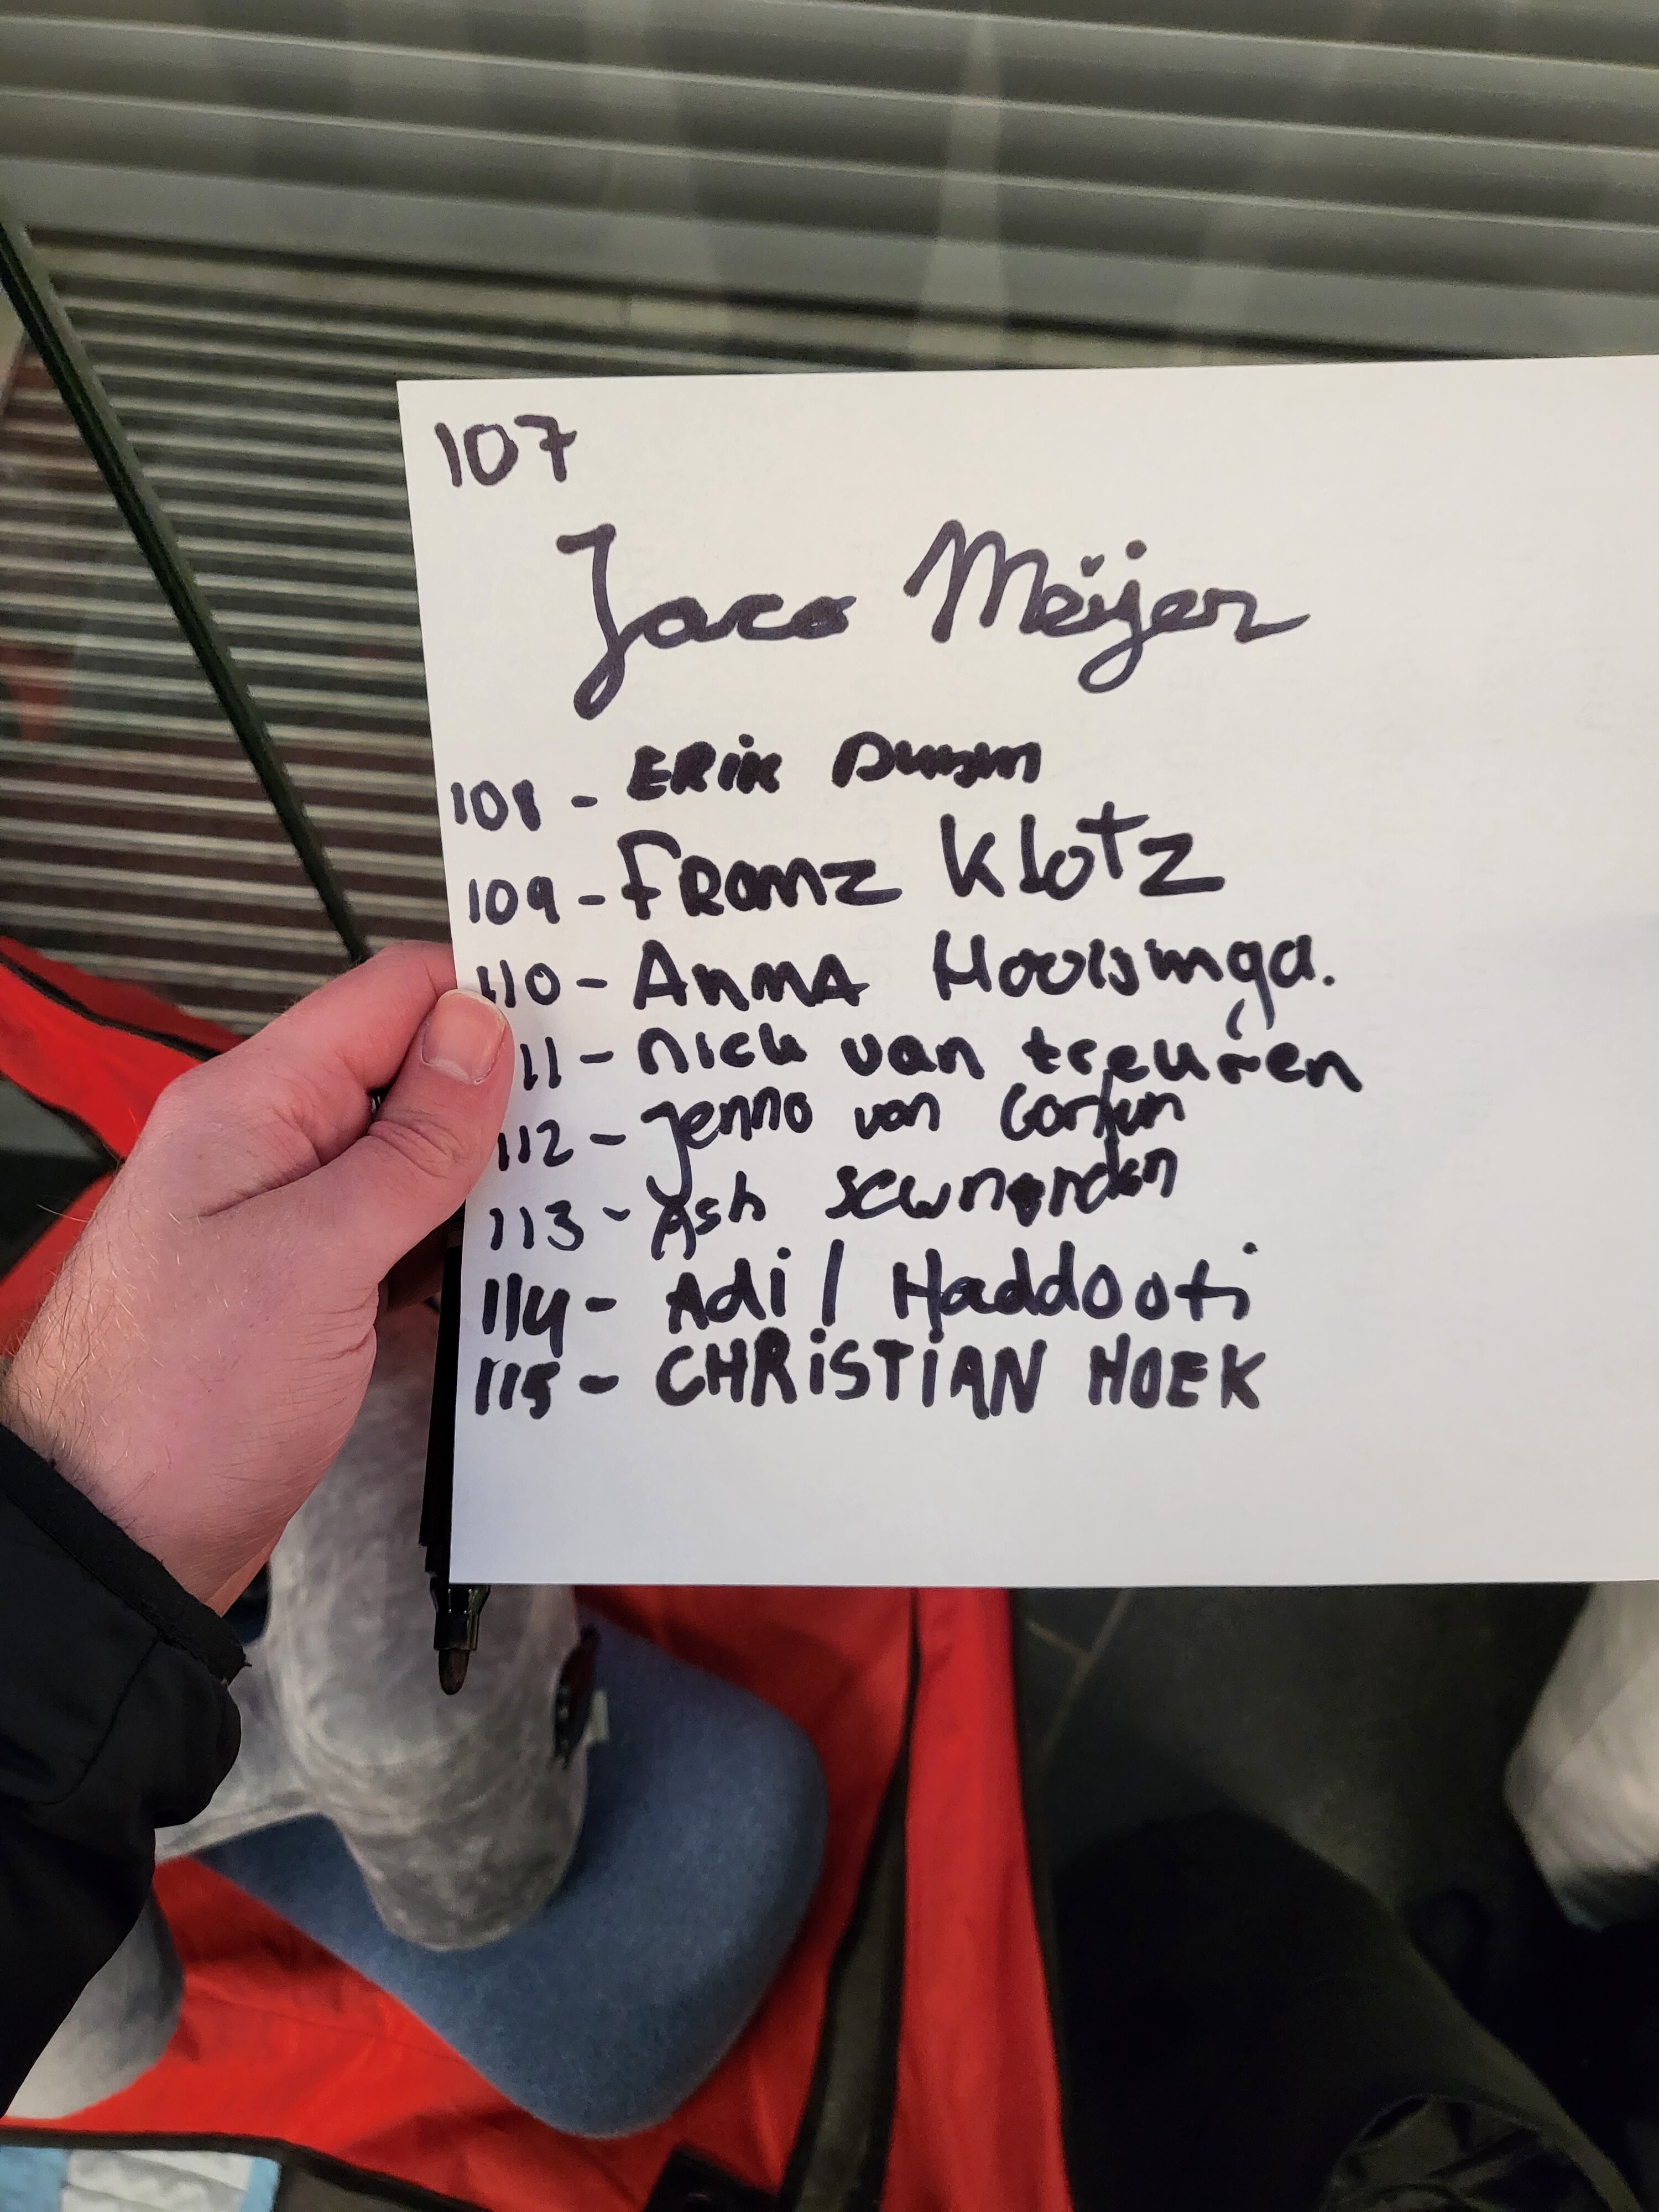 107
Jaco Meijer
108 - ERiK
109 - FRanz Klotz
110 - ANNA Hoolsinga.
11 - nick van treuren
112 - Jenno van
113 - Ash
114 - Adi / Haddooti
115 - CHRiSTiAN HOEK